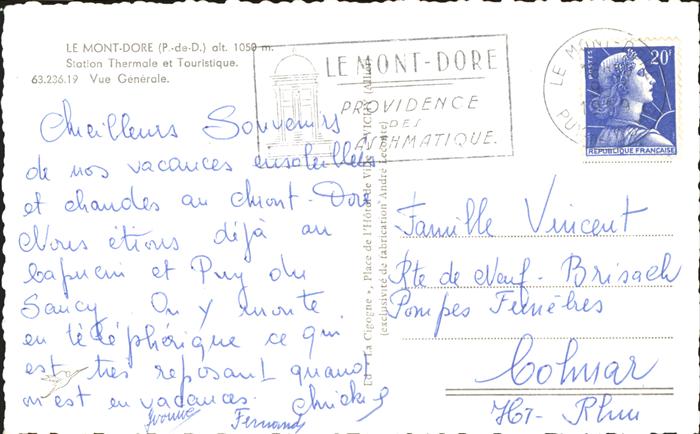 LE MONT-DORE (P.-de-D.) alt. 1050 m.
Station Thermale et Touristique.
63.236.19 Vue Générale.
LE MONT-DORE
PROVIDENCE
DES
ASTHMATIQUE.
LE MONT-DORE
PUY
POSTES
20F
REPUBLIQUE FRANÇAISE
Meilleurs Souvenirs
de nos vacances ensoleillées
et chaudes au Mont-Dore.
Nous étions déjà au
Capucin et Puy du
Sancy. On y monte
en téléphérique ce qui
est très reposant quand
on est en vacances.
Yvonne Fernand
Ed. « La Cigogne », Place de l'Hôtel de Ville, VICHY (Allier)
(exclusivité de fabrication André Leconte)
Famille Vincent
Rte de Neuf-Brisach
Pompes Funèbres
Colmar
Ht-Rhin